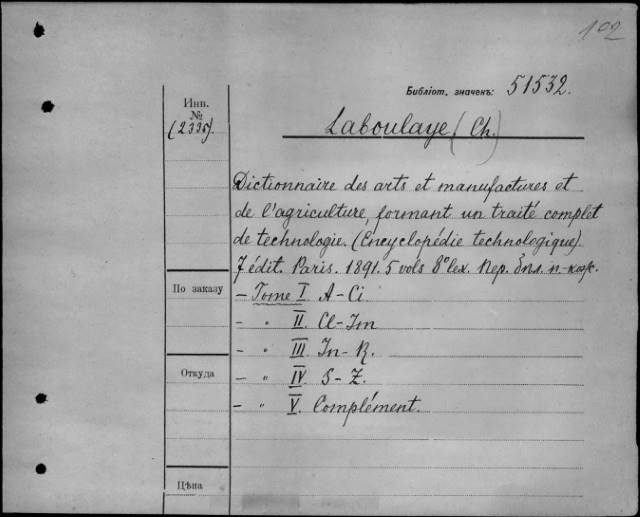 102
Библіот. значенъ: 51532.
Инв.
№
(2335).
Laboulaye (Ch.)
Dictionnaire des arts et manufactures et
de l'agriculture, formant un traité complet
de technologie. (Encyclopédie technologique).
7 édit. Paris. 1891. 5 vols 8° lex. Пер. бпл. п-кож.
По заказу
- Tome I. A-Ci.
- " II. Cl-Im
- " III. In-R.
Откуда
- " IV. S-Z.
- " V. Complément.
Цѣна